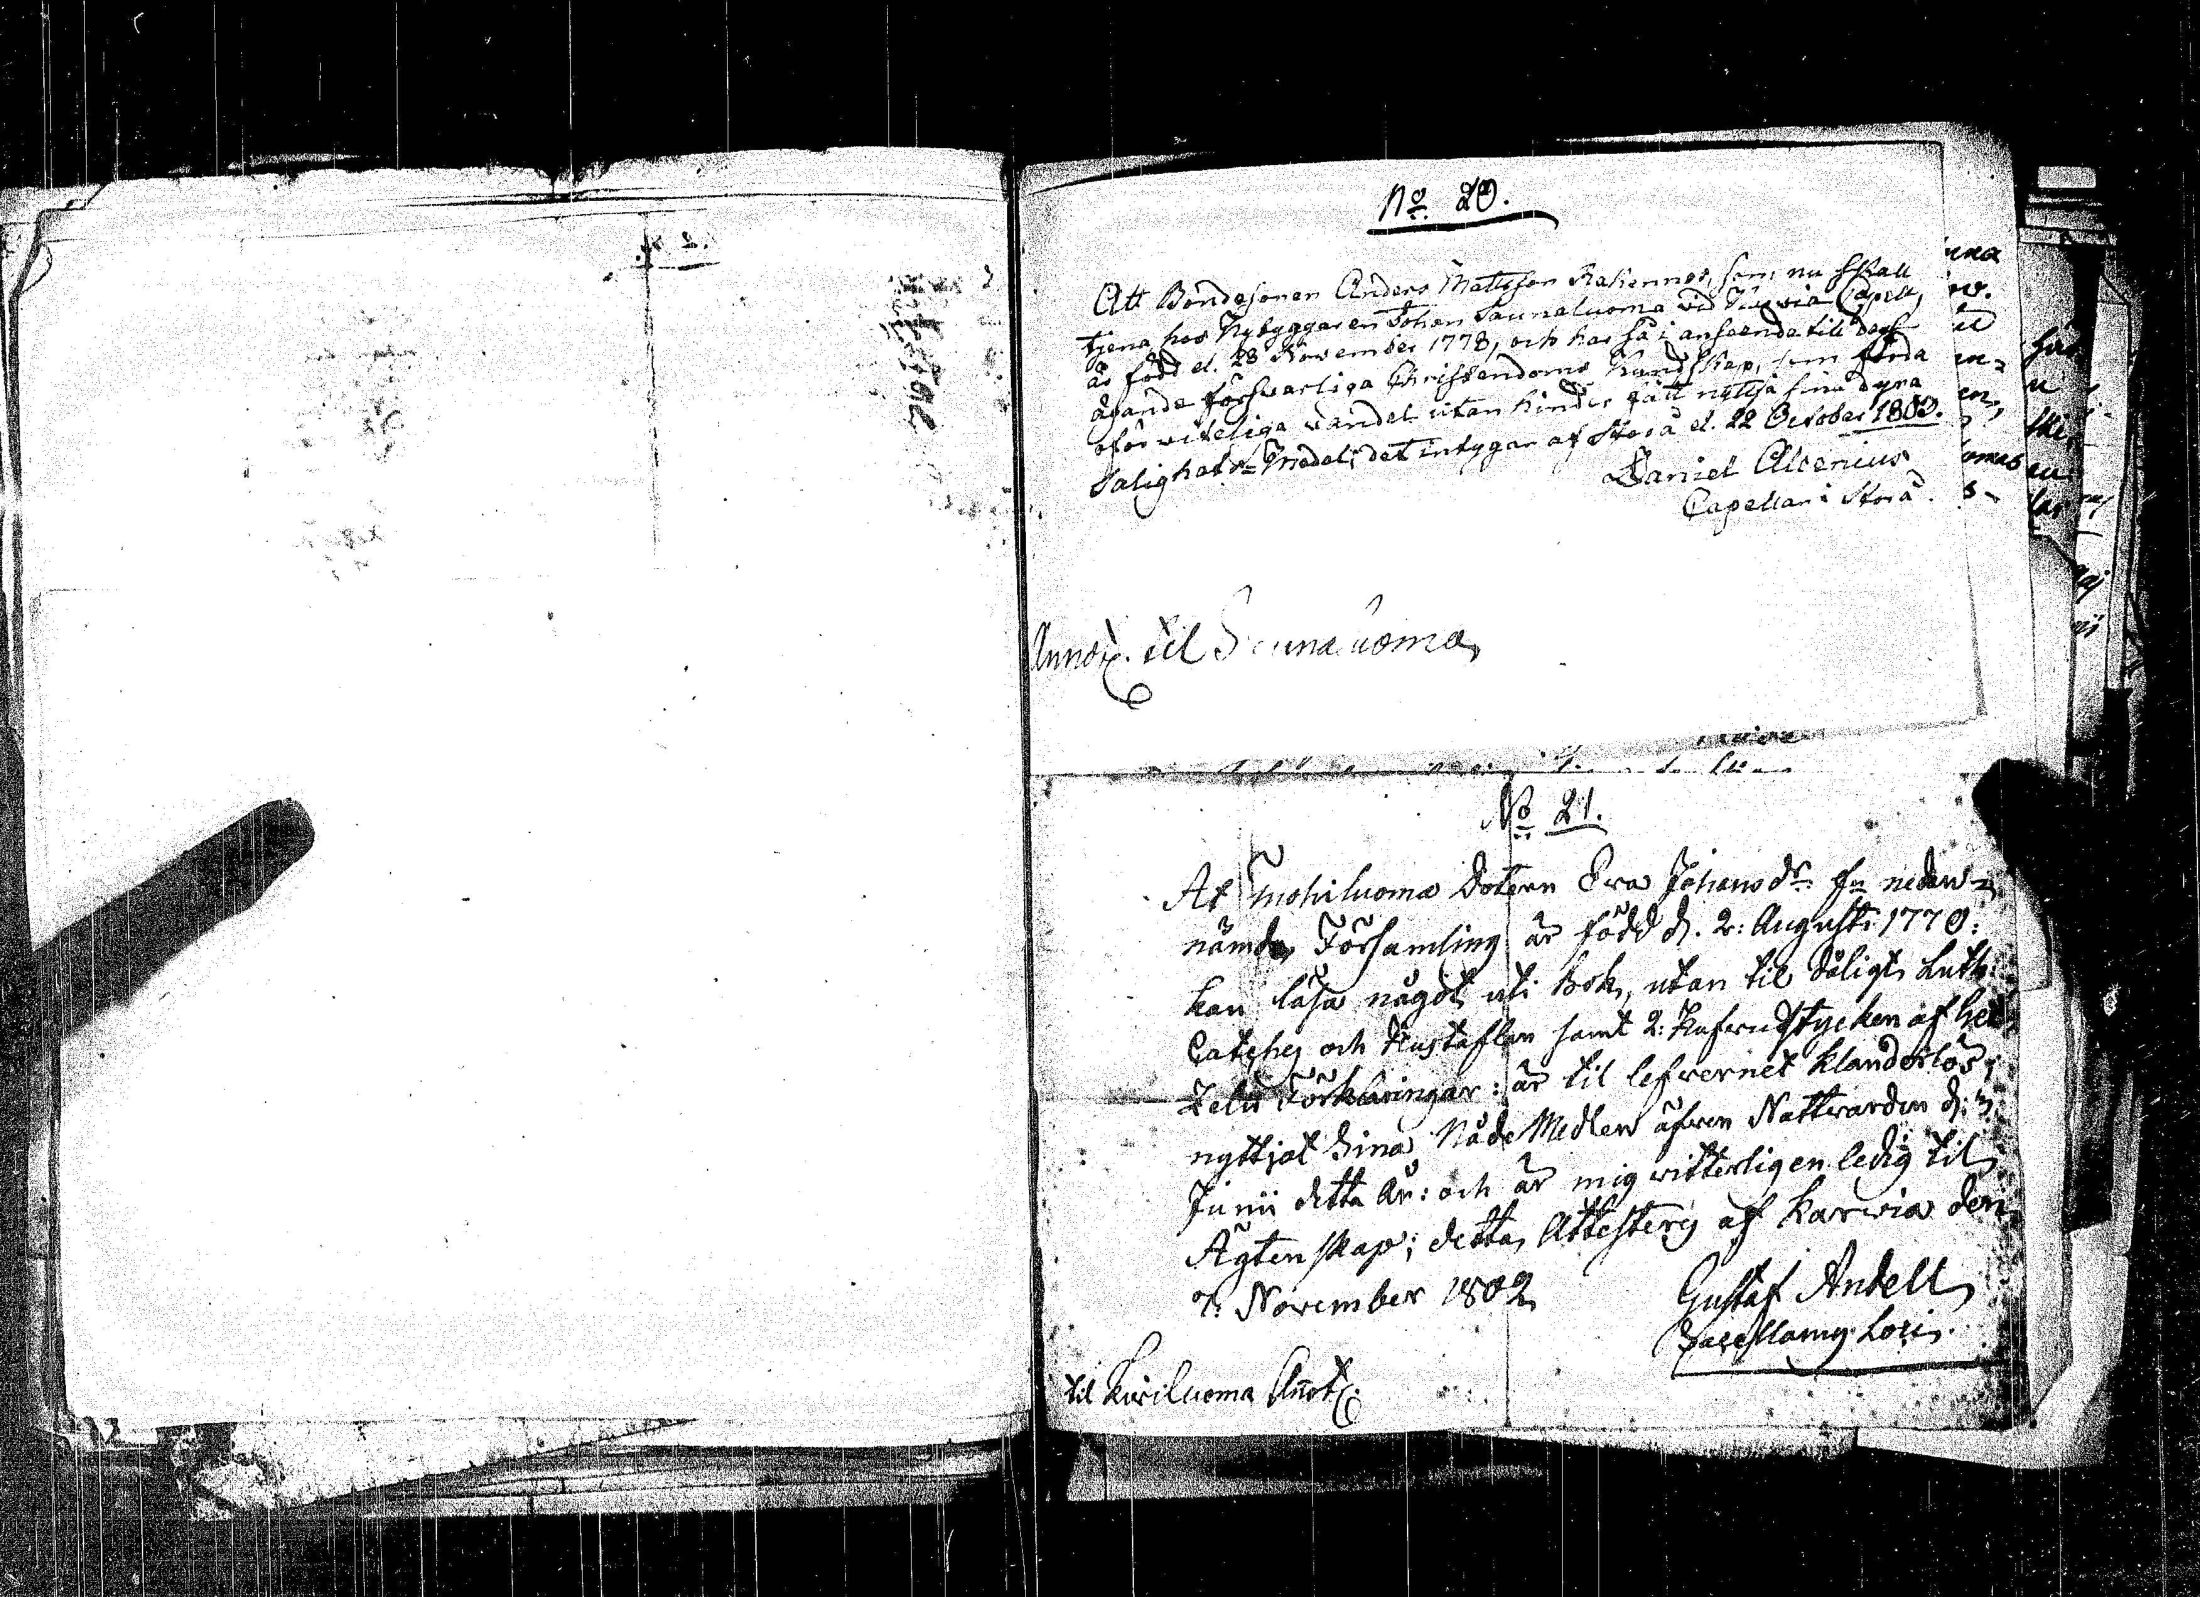 No 20.
Att Bondesonen Anders Mattsson, som nu skall
tjena hos Nybyggaren Johan Saunaluoma vid Capell,
är född d. 28 November 1778, och har så i anseende till dess
ägande försvarliga Christendoms Kundskap, som förda
oförviteliga vandel utan hinder fått nyttja sina dyra
Salighets-Medel; det intygar af Storå d. 22 October 1800.
Daniel Alcenius
Capellan i Storå.
Annot. til Saunaluoma
No 21.
At Mohiluoma Dotern Eva Johansdr fr nedan-
nämda Församling är född d. 2: Augusti 1770:
kan läsa något uti bok, utan til dåligt Luth:
Catches och Hustaflan samt 2: stycken af
Förklaringar: är til lefvernet klanderlös;
nyttjat sina Nåde Medlen äfven Nattvarden d: 3
Junii detta år: och är mig vitterligen ledig til
Ägtenskap; detta Attesterg af Karvia den
7: November 1802
Gustaf Andell
Sacellang: Loci.
til Kiviluoma Annot.